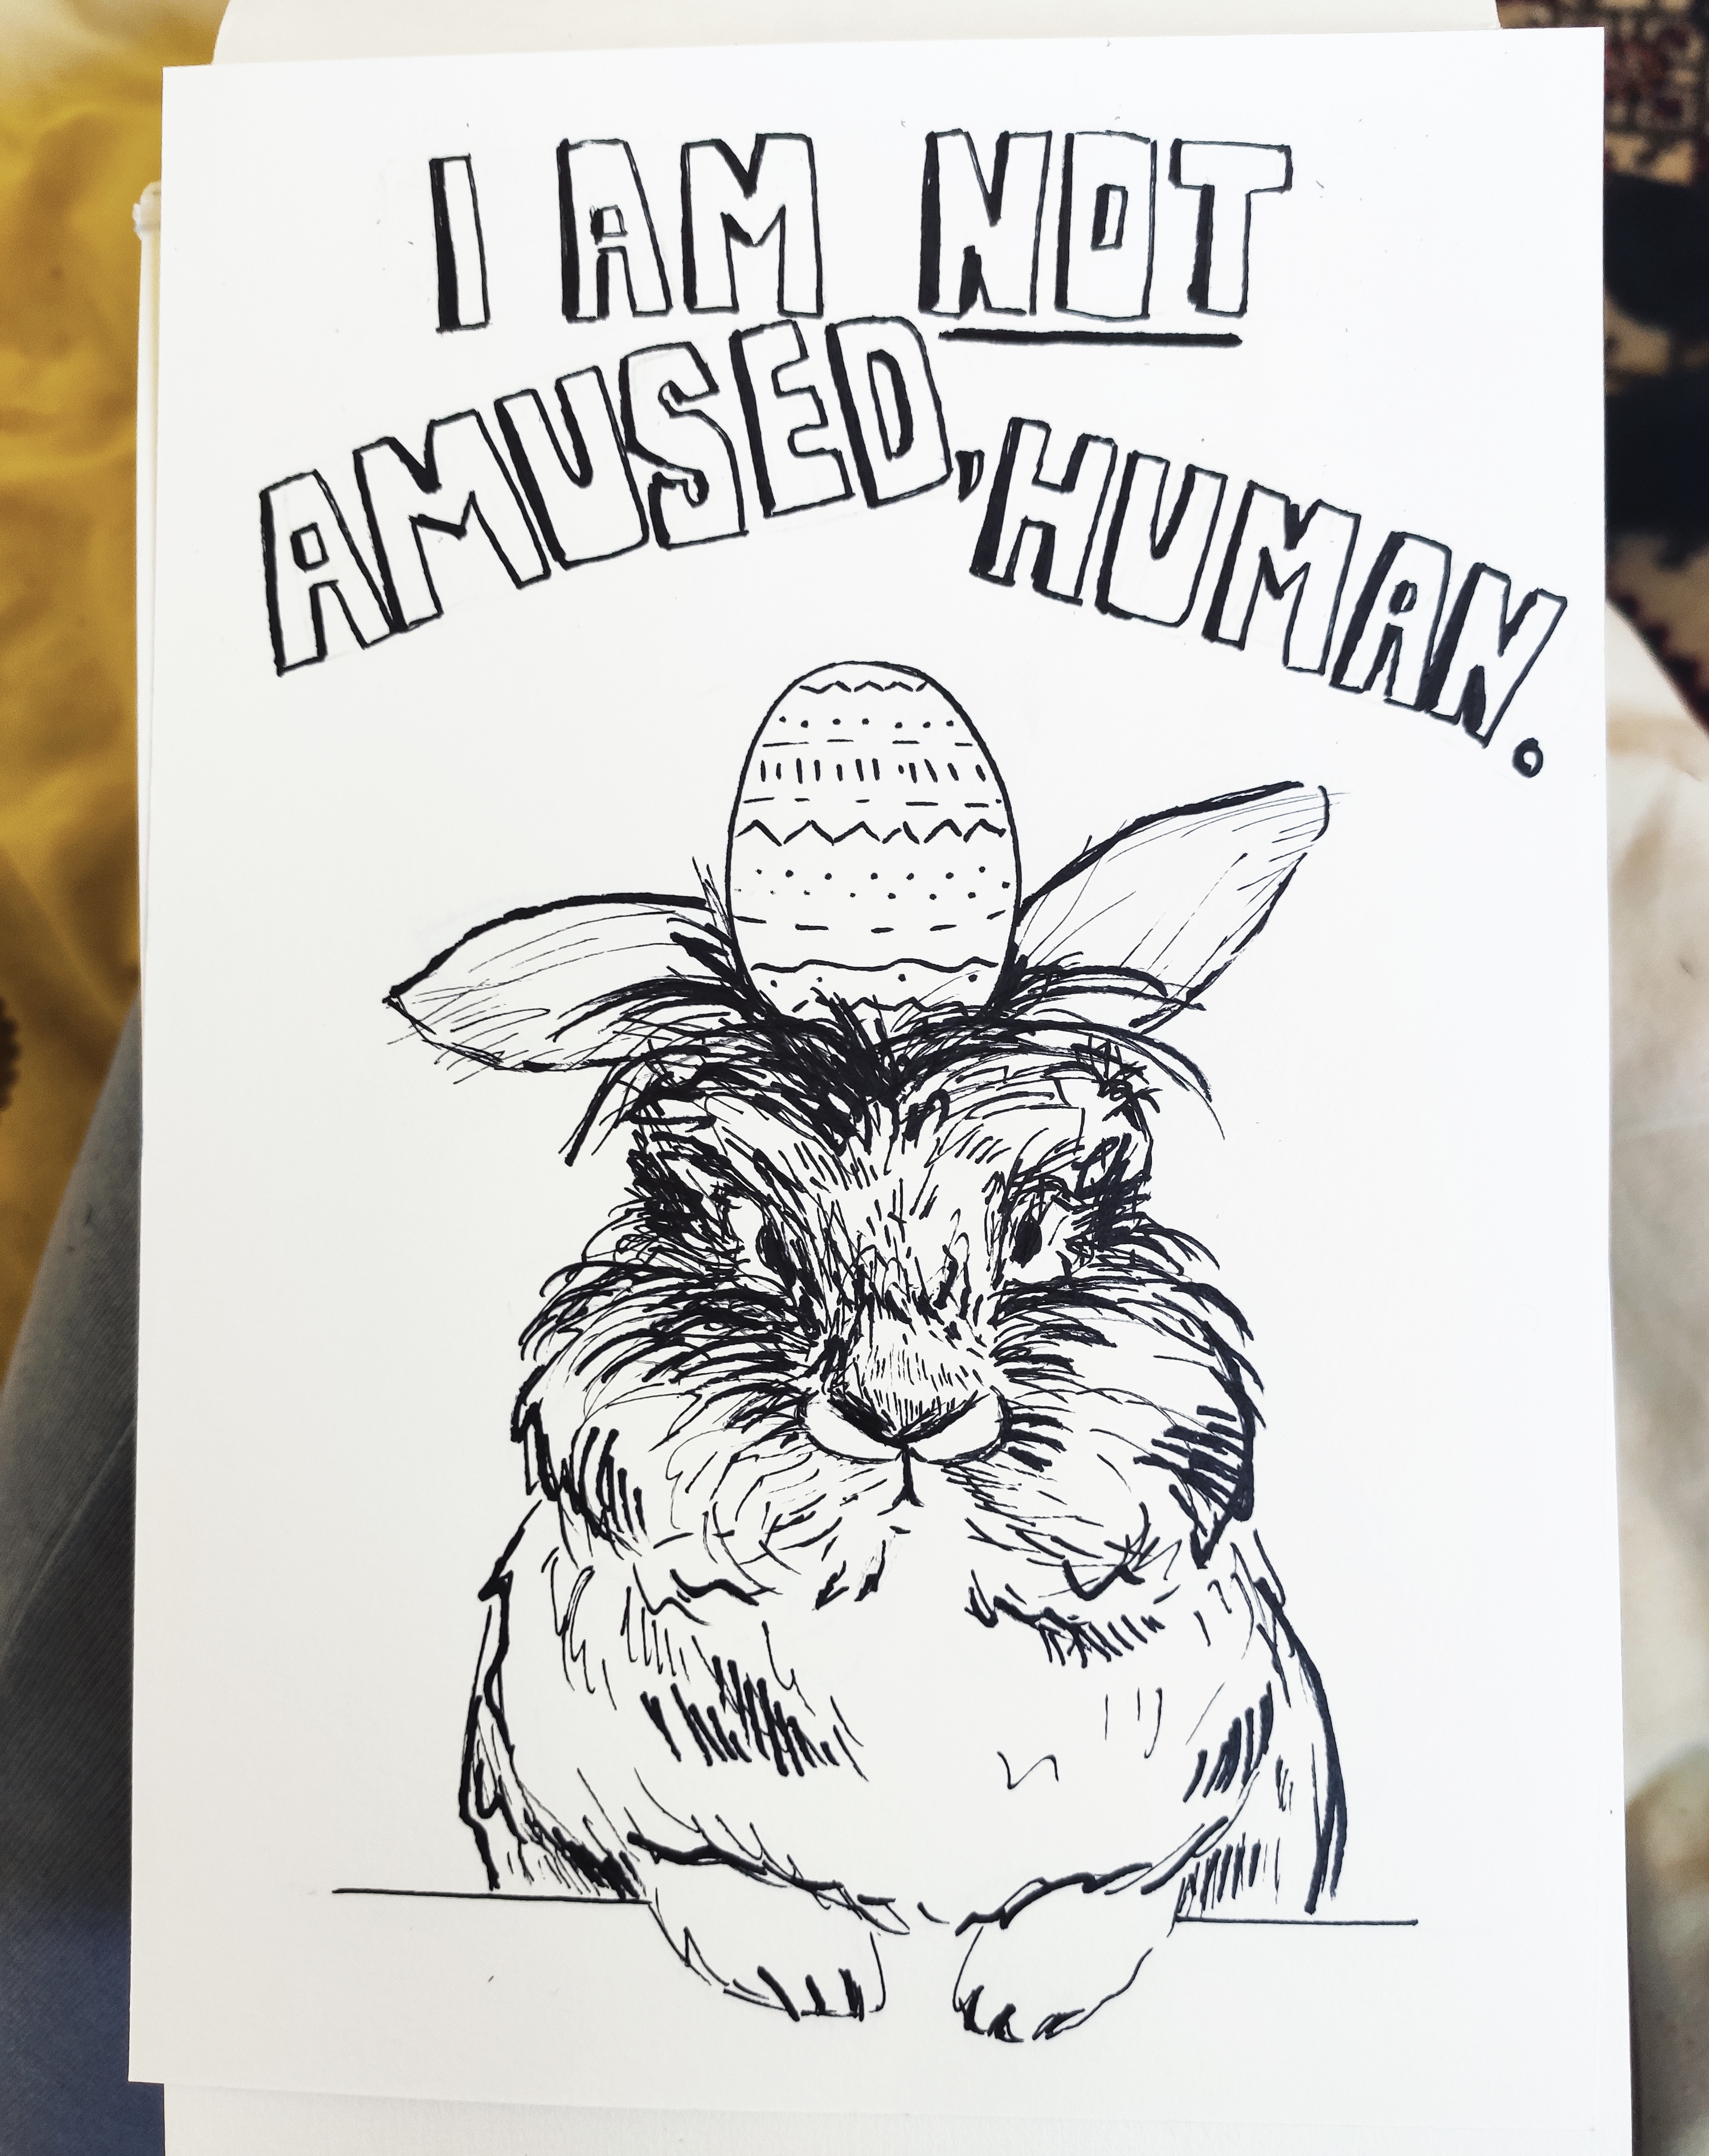 I AM NOT
AMUSED, HUMAN.